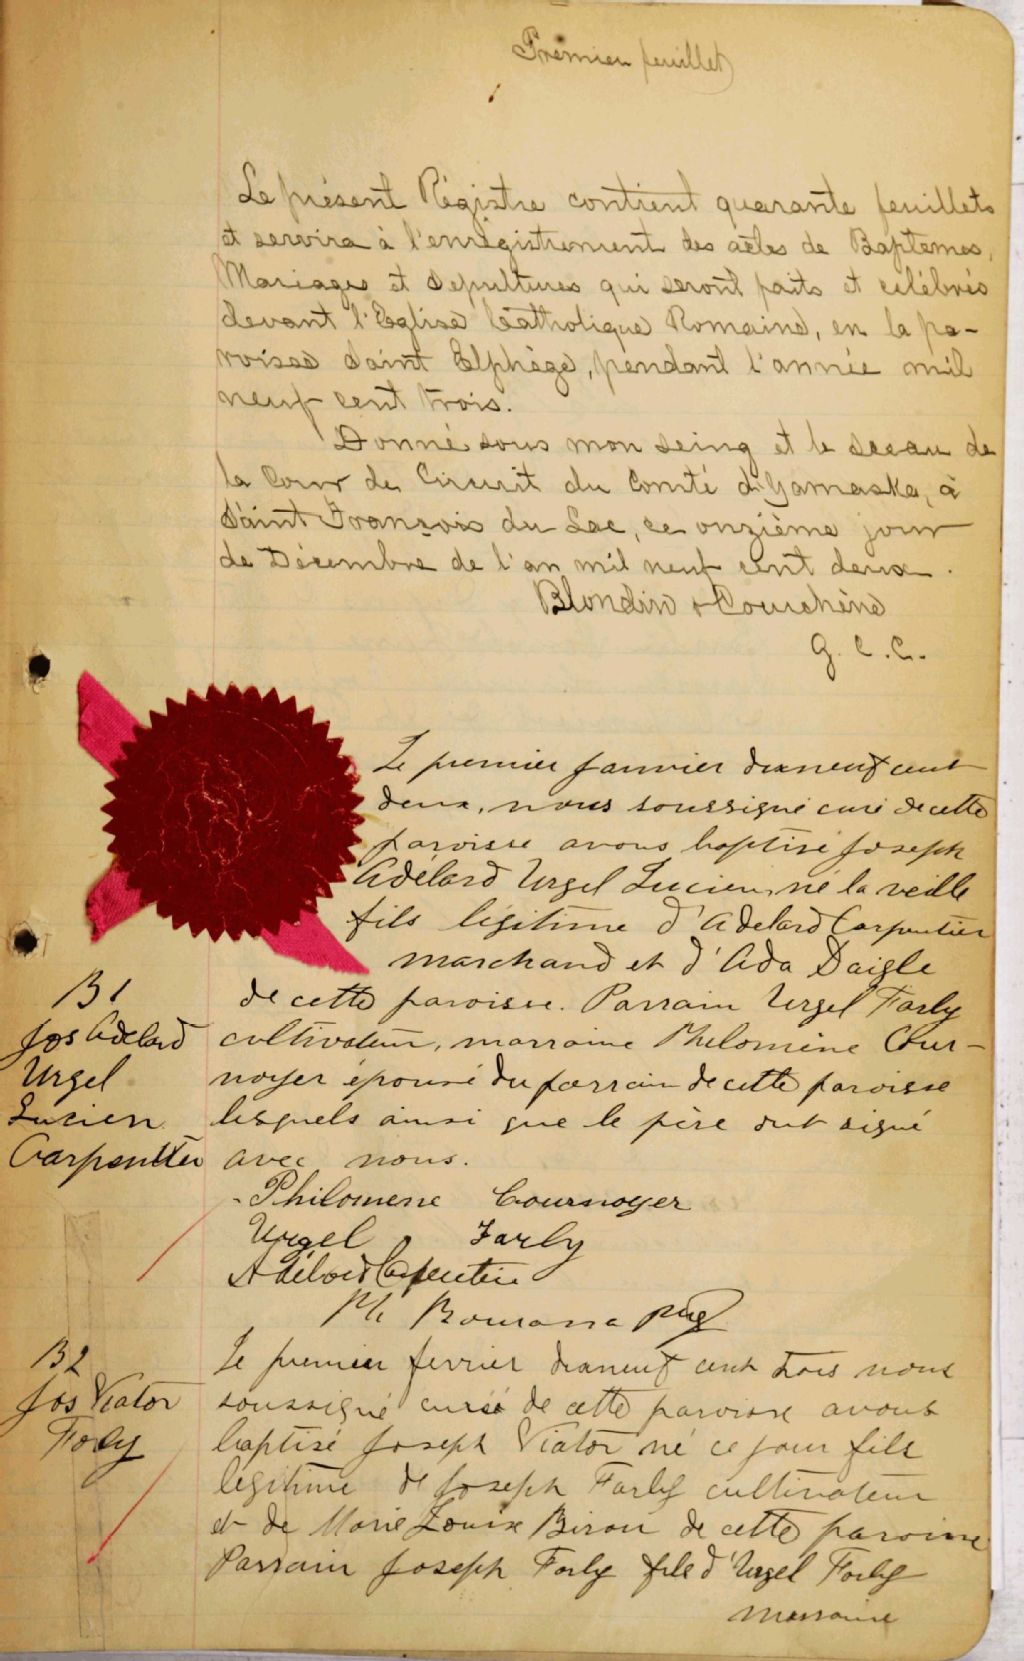 Premier feuillet
Le présent Régistre contient quarante feuillets
et servira à l'enrégistrement des actes de Baptemes,
Mariages et Sepultures qui seront faits et célébrés
devant l'Eglise Catholique Romaine, en la pa-
roisse Saint Elphège, pendant l'année mil
neuf cent trois.
Donné sous mon seing et le sceau de
la Cour de Circuit du Comté d'Yamaska, à
Saint François du Lac, ce onzième jour
de Décembre de l'an mil neuf cent deux.
Blondin & Courchène
G. C. C.
Le premier janvier dixneuf cent
deux, nous soussigné curé de cette
paroisse avons baptisé Joseph
Adélard Urgel Lucien, né la veille
fils légitime d'Adelard Carpentier
marchand et d'Ada Daigle
de cette paroisse. Parrain Urgel Farly
cultivateur, marraine Philomène Cour-
noyer épouse du parrain de cette paroisse
lesquels ainsi que le père ont signé
avec nous.
B1
Jos Adelard
Urgel
Lucien
Carpentier
Philomene Cournoyer
Urgel Farly
Adélard Carpentier
M. Bourassa ptre
B2
Jos Viator
Farly
Le premier fevrier dixneuf cent trois nous
soussigné curé de cette paroisse avons
baptisé Joseph Viator né ce jour fils
legitime de Joseph Farly cultivateur
et de Marie Louise Biron de cette paroisse
Parrain Joseph Farly fils d'Urgel Farly
marraine